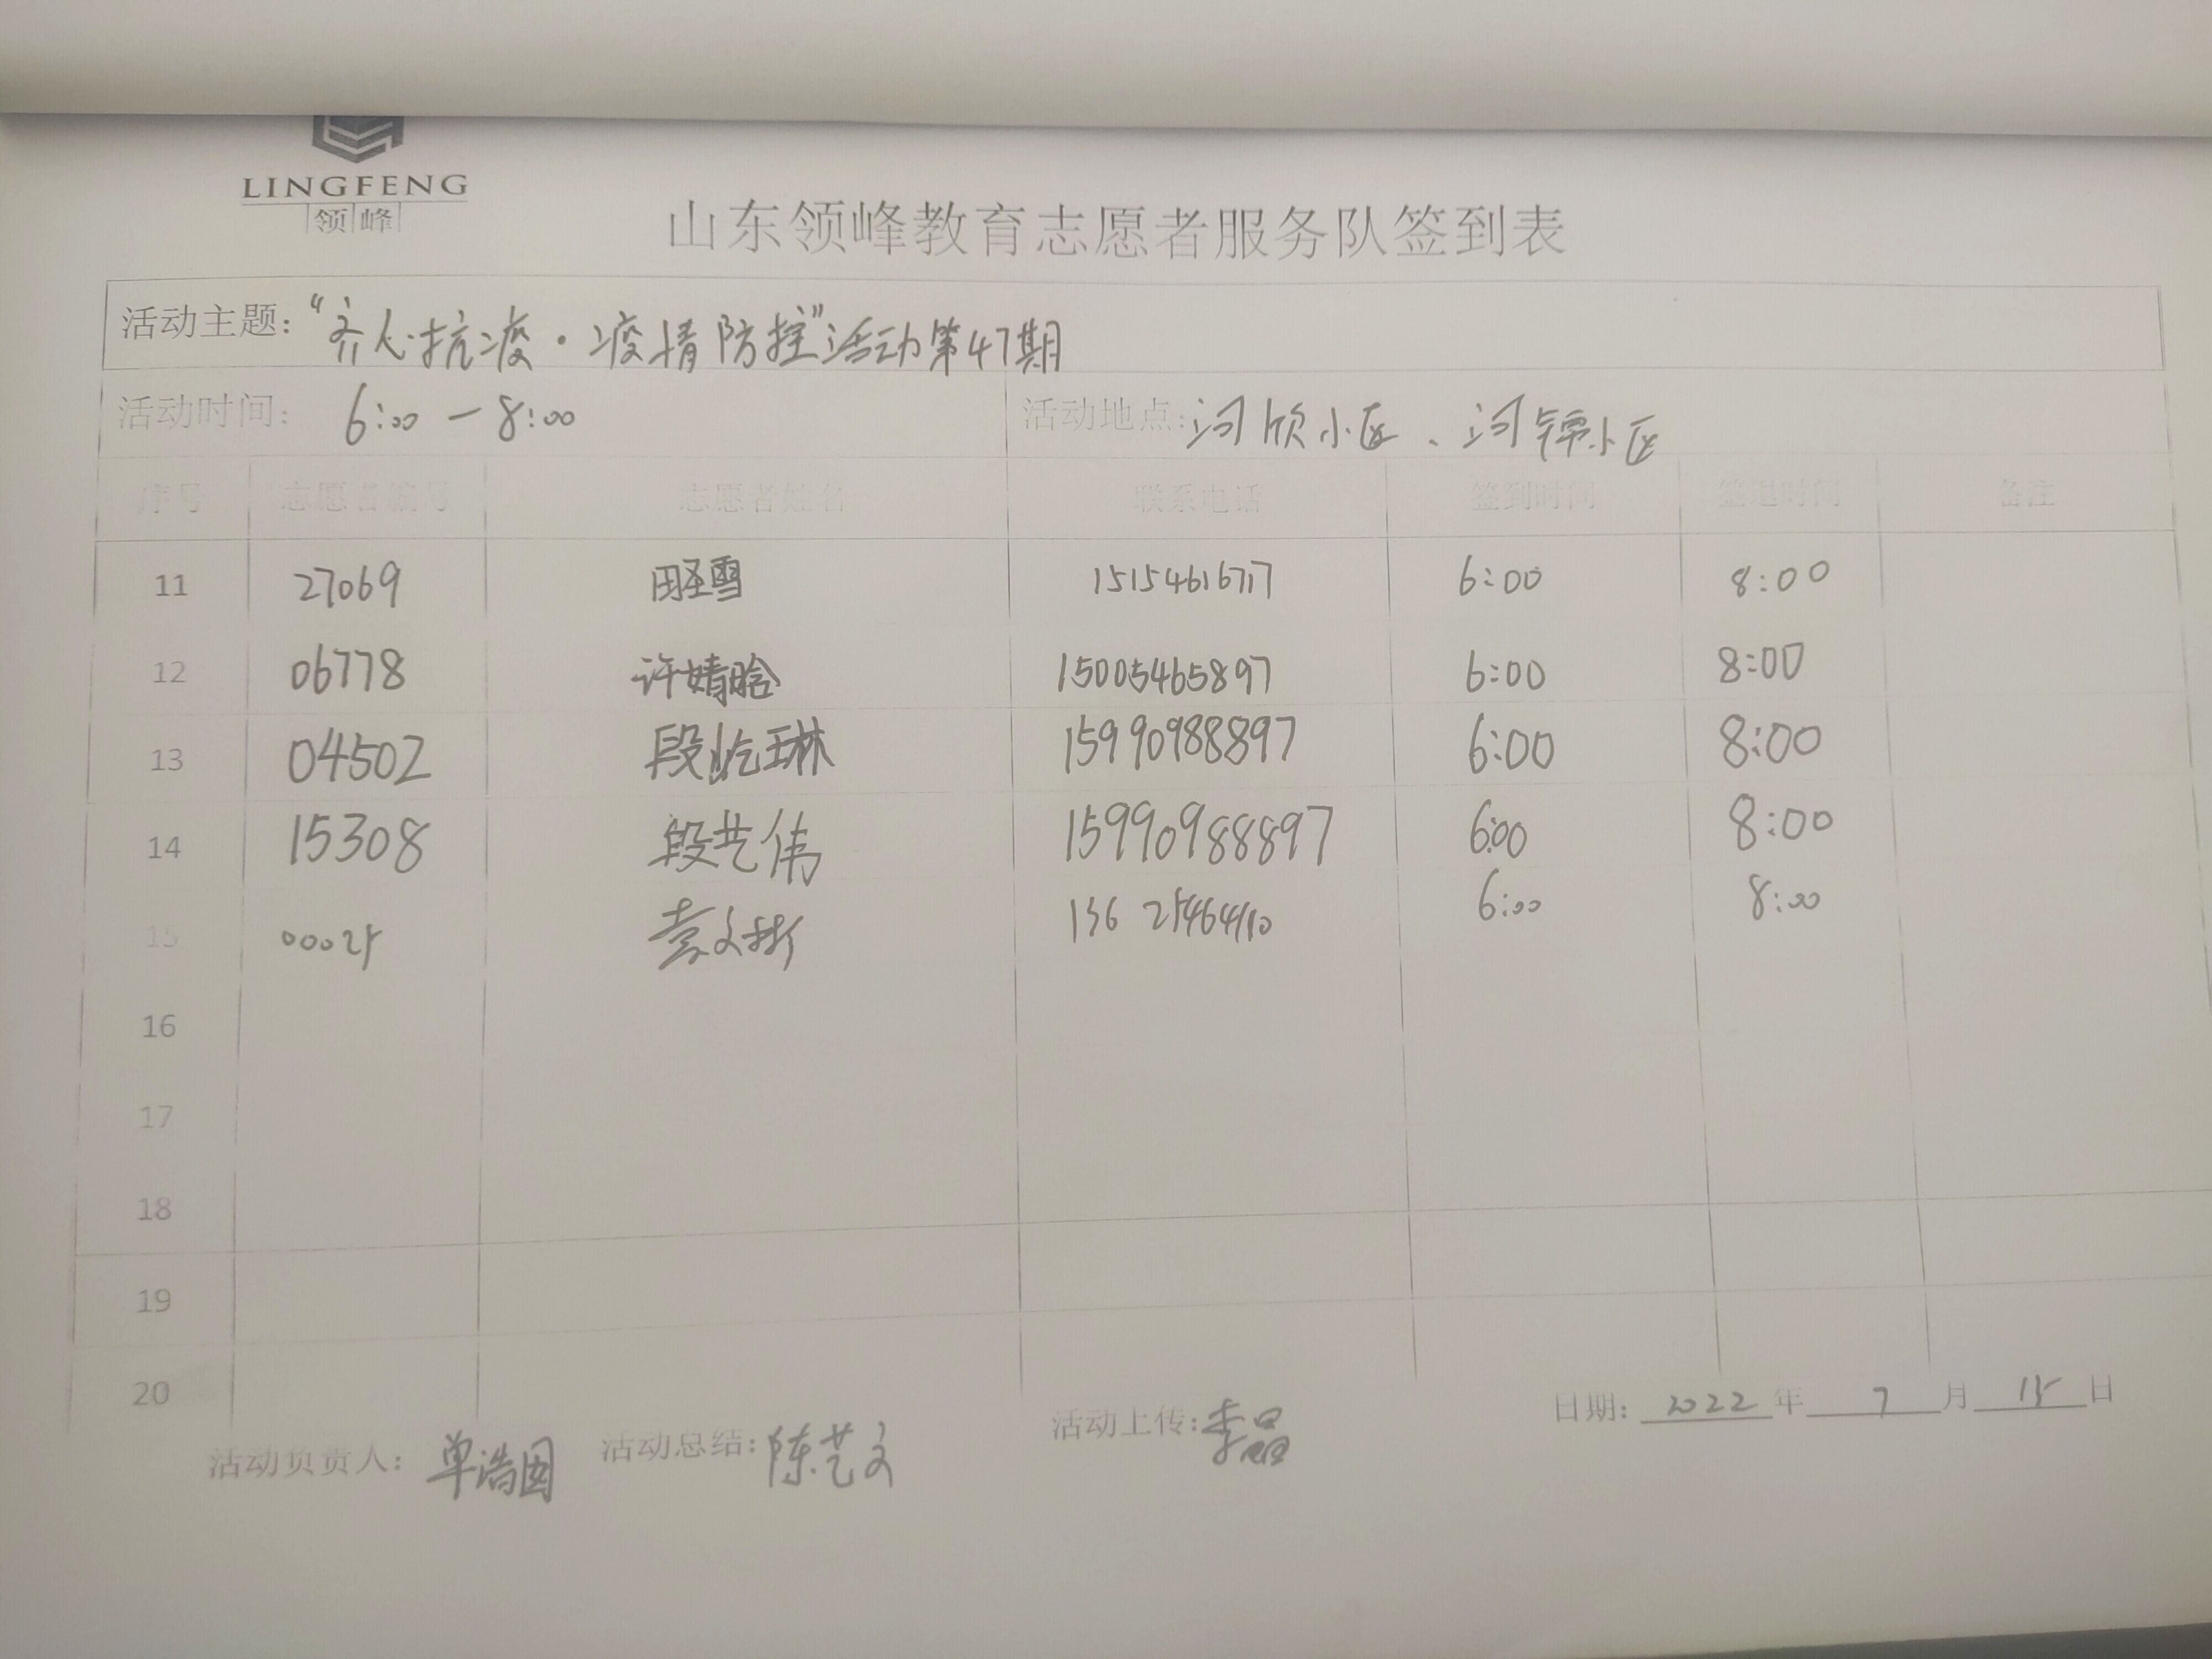 LINGFENG
领峰
山东领峰教育志愿者服务队签到表
活动主题:“齐心抗疫·疫情防控”活动第47期
活动时间: 6:00 — 8:00 活动地点: 河欣小区、河锦小区
序号 志愿者编号 志愿者姓名 联系电话 签到时间 签退时间 备注
11 27069 15154616717 6:00 8:00
12 06778 许婧晗 15005465897 6:00 8:00
13 04502 段屹琳 15990988897 6:00 8:00
14 15308 段艺伟 15990988897 6:00 8:00
15 00025 袁文彬 6:00 8:00
16
17
18
19
20
活动负责人: 单浩国 活动总结: 陈艺文 活动上传: 李晶 日期: 2022 年 7 月 15 日